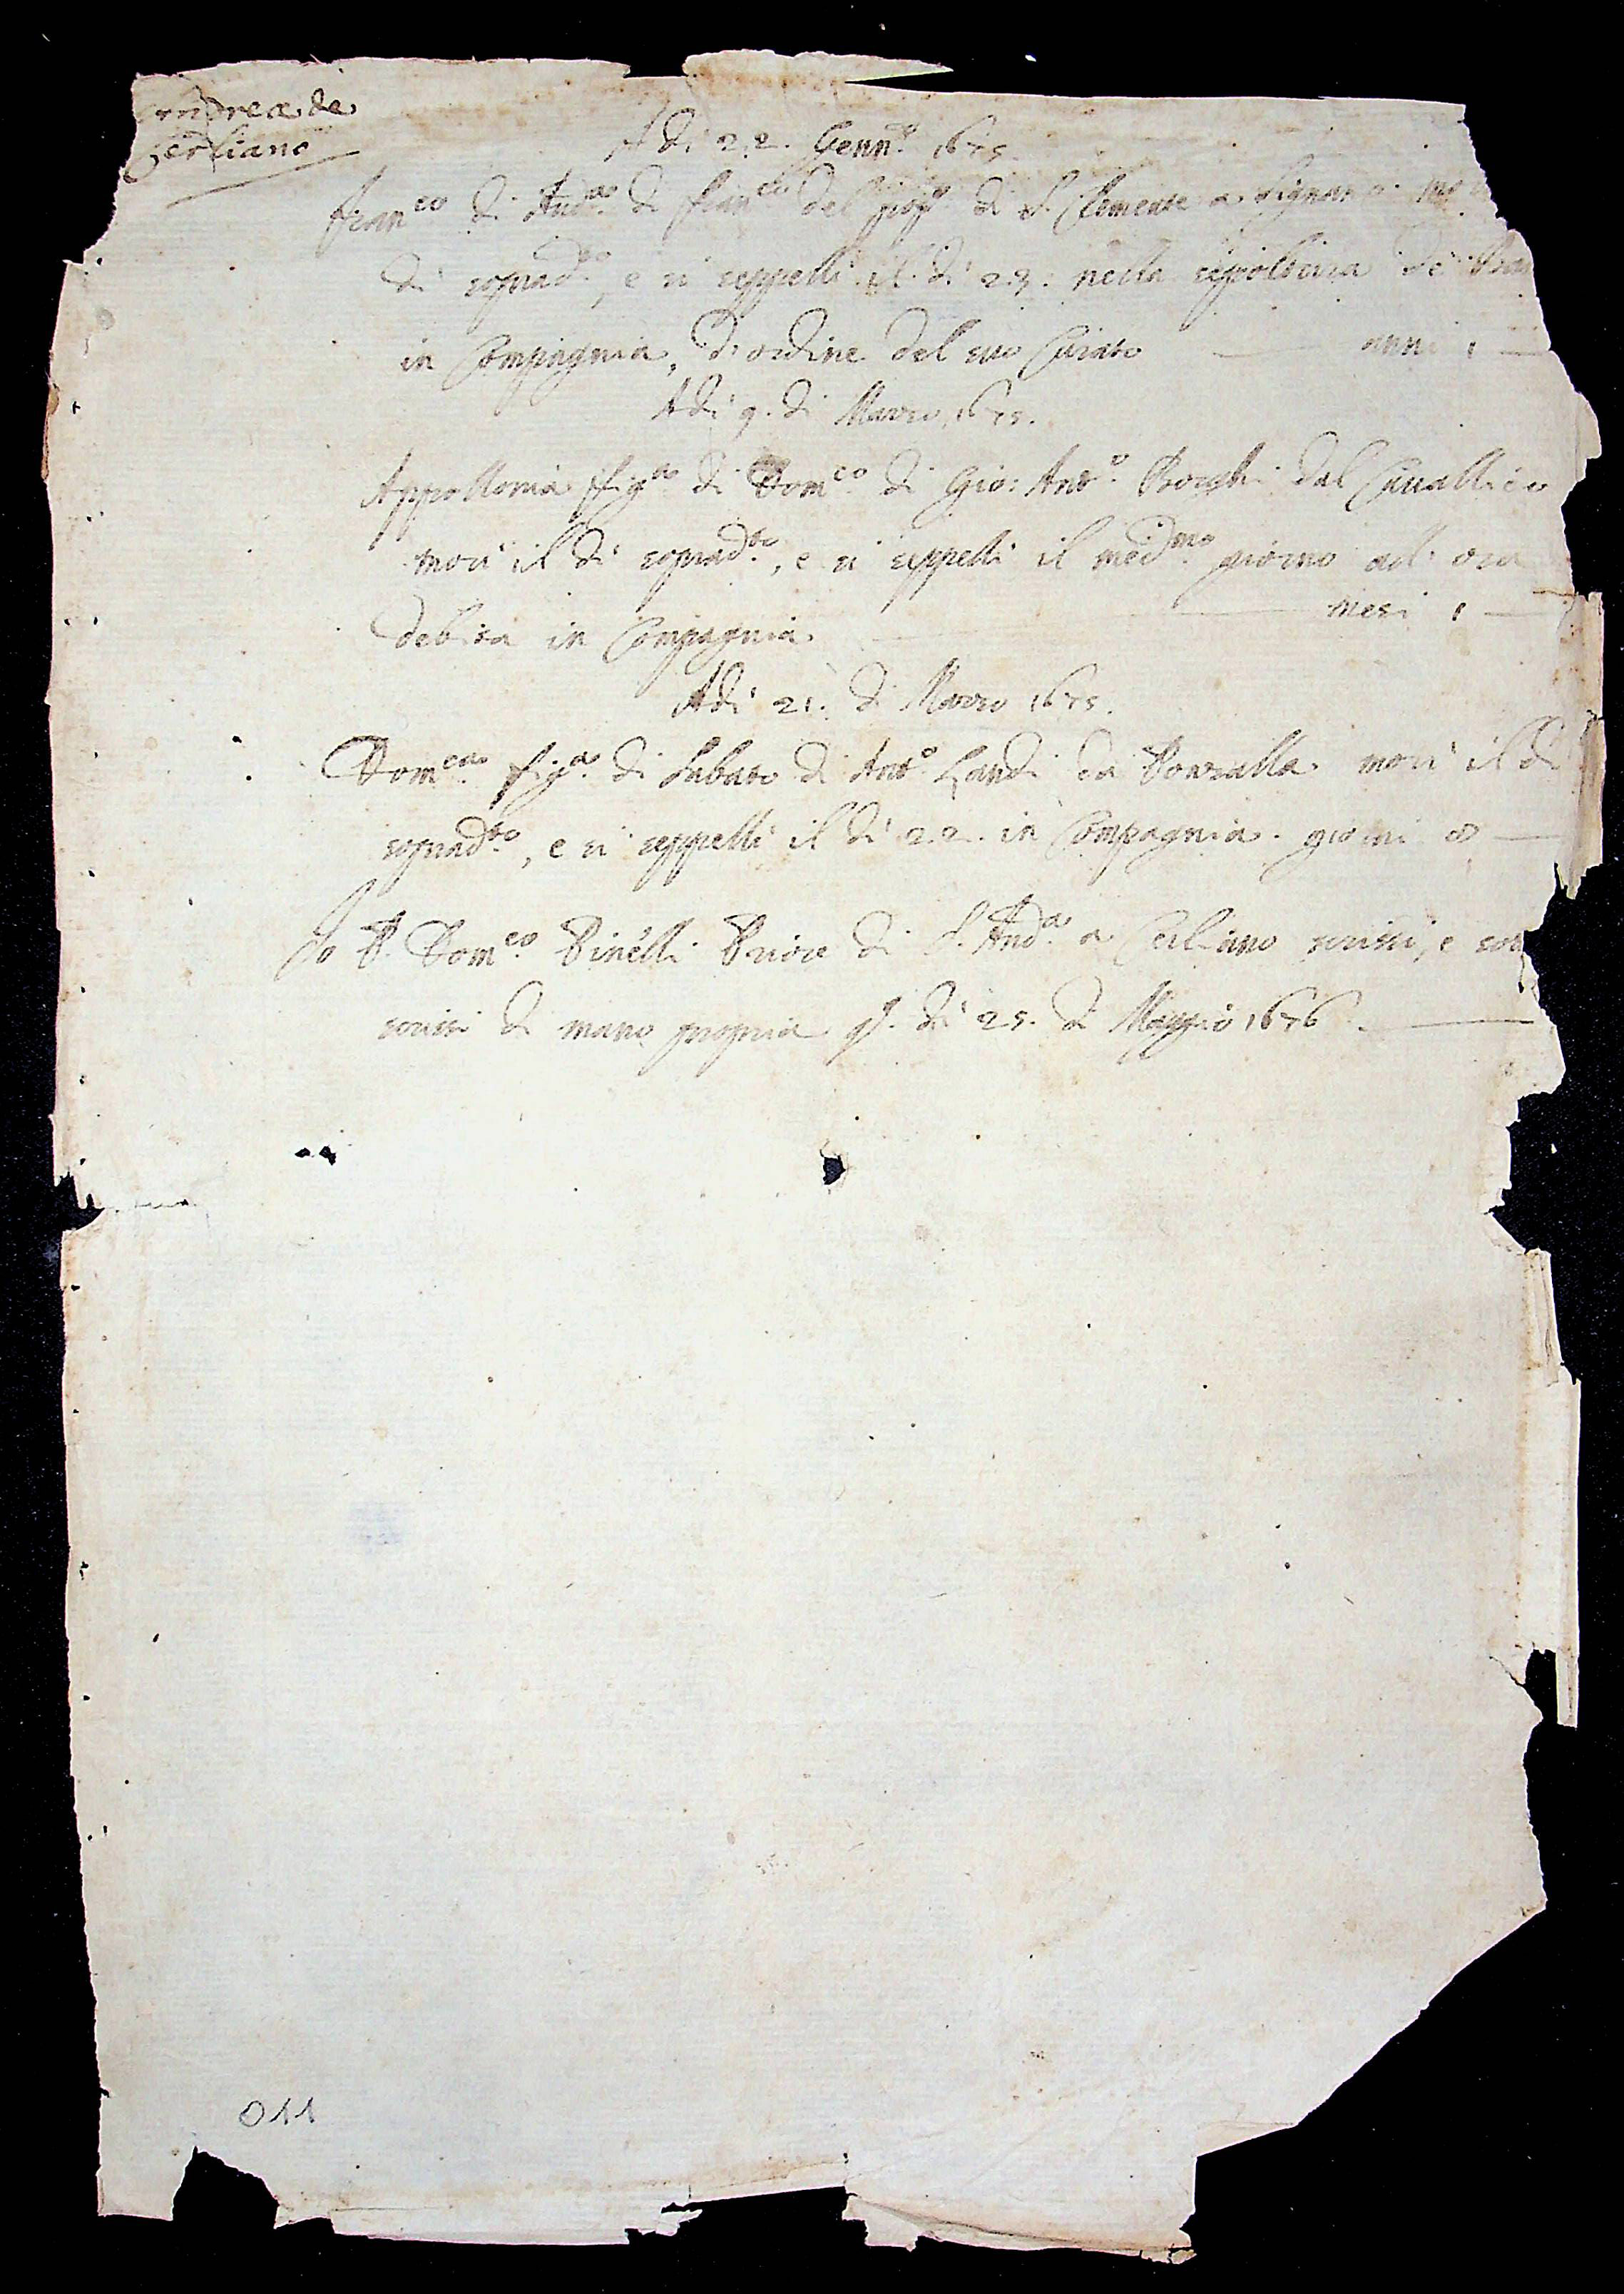 Andrea de
Cerliano
Adi 22. Genn.o 1675.
Fran.co di And.a di Fran.co del pop.o di S. Clemente a Signano
di soprad.to, e si seppelli il di 23. nella sepoltura de
in Compagnia, d'ordine del suo Curato anni 1
Adi 9. di Marzo 1675.
Appollonia fig.a di Dom.co di Gio: Ant.o Borghi dal Cavallico
morì il dì soprad.to, e si seppelli il med.mo giorno ad ora
debita in Compagnia. mesi 1
Adi 21. di Marzo 1675.
Dom.ca fig.a di Sabato di Ant.o Landi da Ponzalla morì il di
soprad.to, e si seppelli il dì 22. in Compagnia. giorni 8
Io P. Dom.co Pinelli Priore di S. And.a a Cerliano scrissi, e sot
scrissi di mano propria q.o dì 25. di Maggio 1676.
011